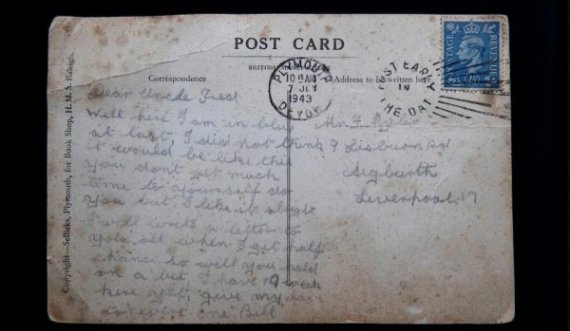 POST CARD
Correspondence
Address to be written here
PLYMOUTH
10 AM
7 JLY
1943
DEVON
POST EARLY
IN
THE DAY
POSTAGE
REVENUE
Copyright—Sellicks, Plymouth, for Book Shop, H. M. S. Raleigh.
Dear Uncle Fred
Well here I am in blue
at last, I did not think
it would be like this
you don't get much
time to yourself do
you but I like it alright
I will write a letter to
you all when I get half
chance so will you hold
on a bit I have 9 weeks
here yet, give my love
to every one Bill
Mr F
9 Lisburn Rd
Aigburth
Liverpool 17